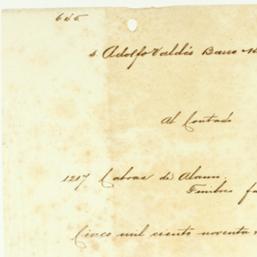 á Adolfo Valdés
Al Contado
1217 Cabras de
Timbre
Cinco mil ciento noventa